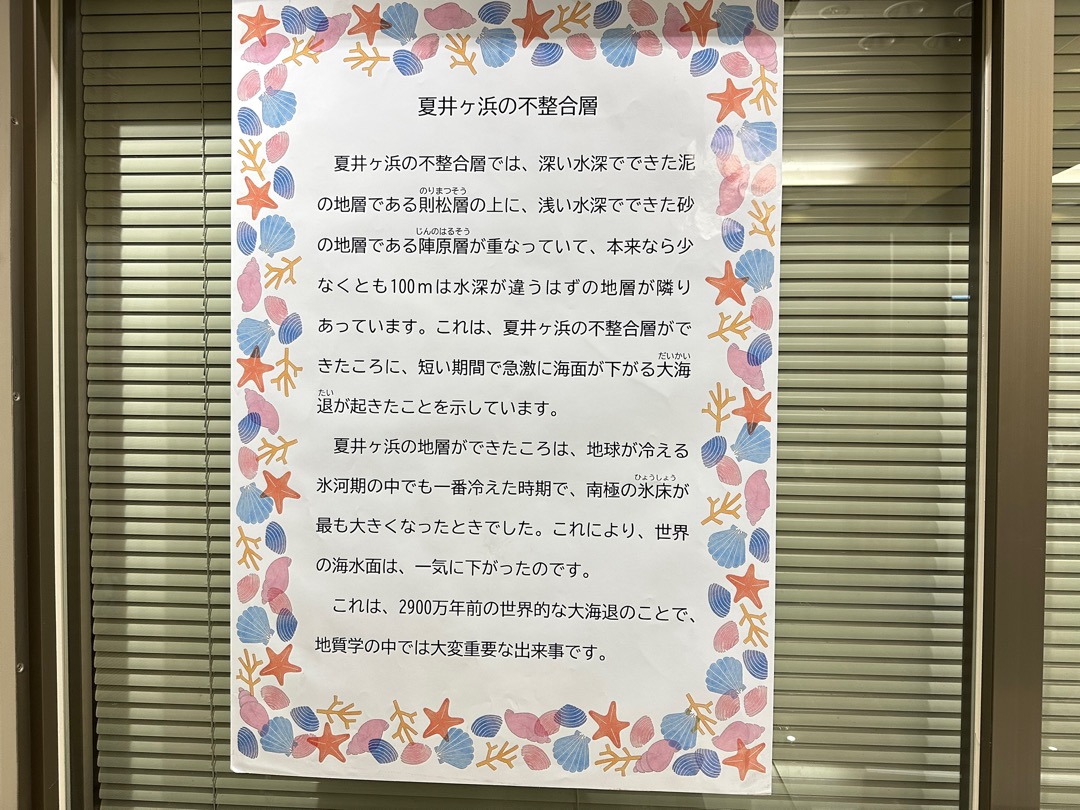 夏井ヶ浜の不整合層
夏井ヶ浜の不整合層では、深い水深でできた泥
のりまつそう
の地層である則松層の上に、浅い水深でできた砂
じんのはるそう
の地層である陣原層が重なっていて、本来なら少
なくとも100ｍは水深が違うはずの地層が隣り
あっています。これは、夏井ヶ浜の不整合層がで
だいかい
きたころに、短い期間で急激に海面が下がる大海
たい
退が起きたことを示しています。
夏井ヶ浜の地層ができたころは、地球が冷える
ひょうしょう
氷河期の中でも一番冷えた時期で、南極の氷床が
最も大きくなったときでした。これにより、世界
の海水面は、一気に下がったのです。
これは、2900万年前の世界的な大海退のことで、
地質学の中では大変重要な出来事です。